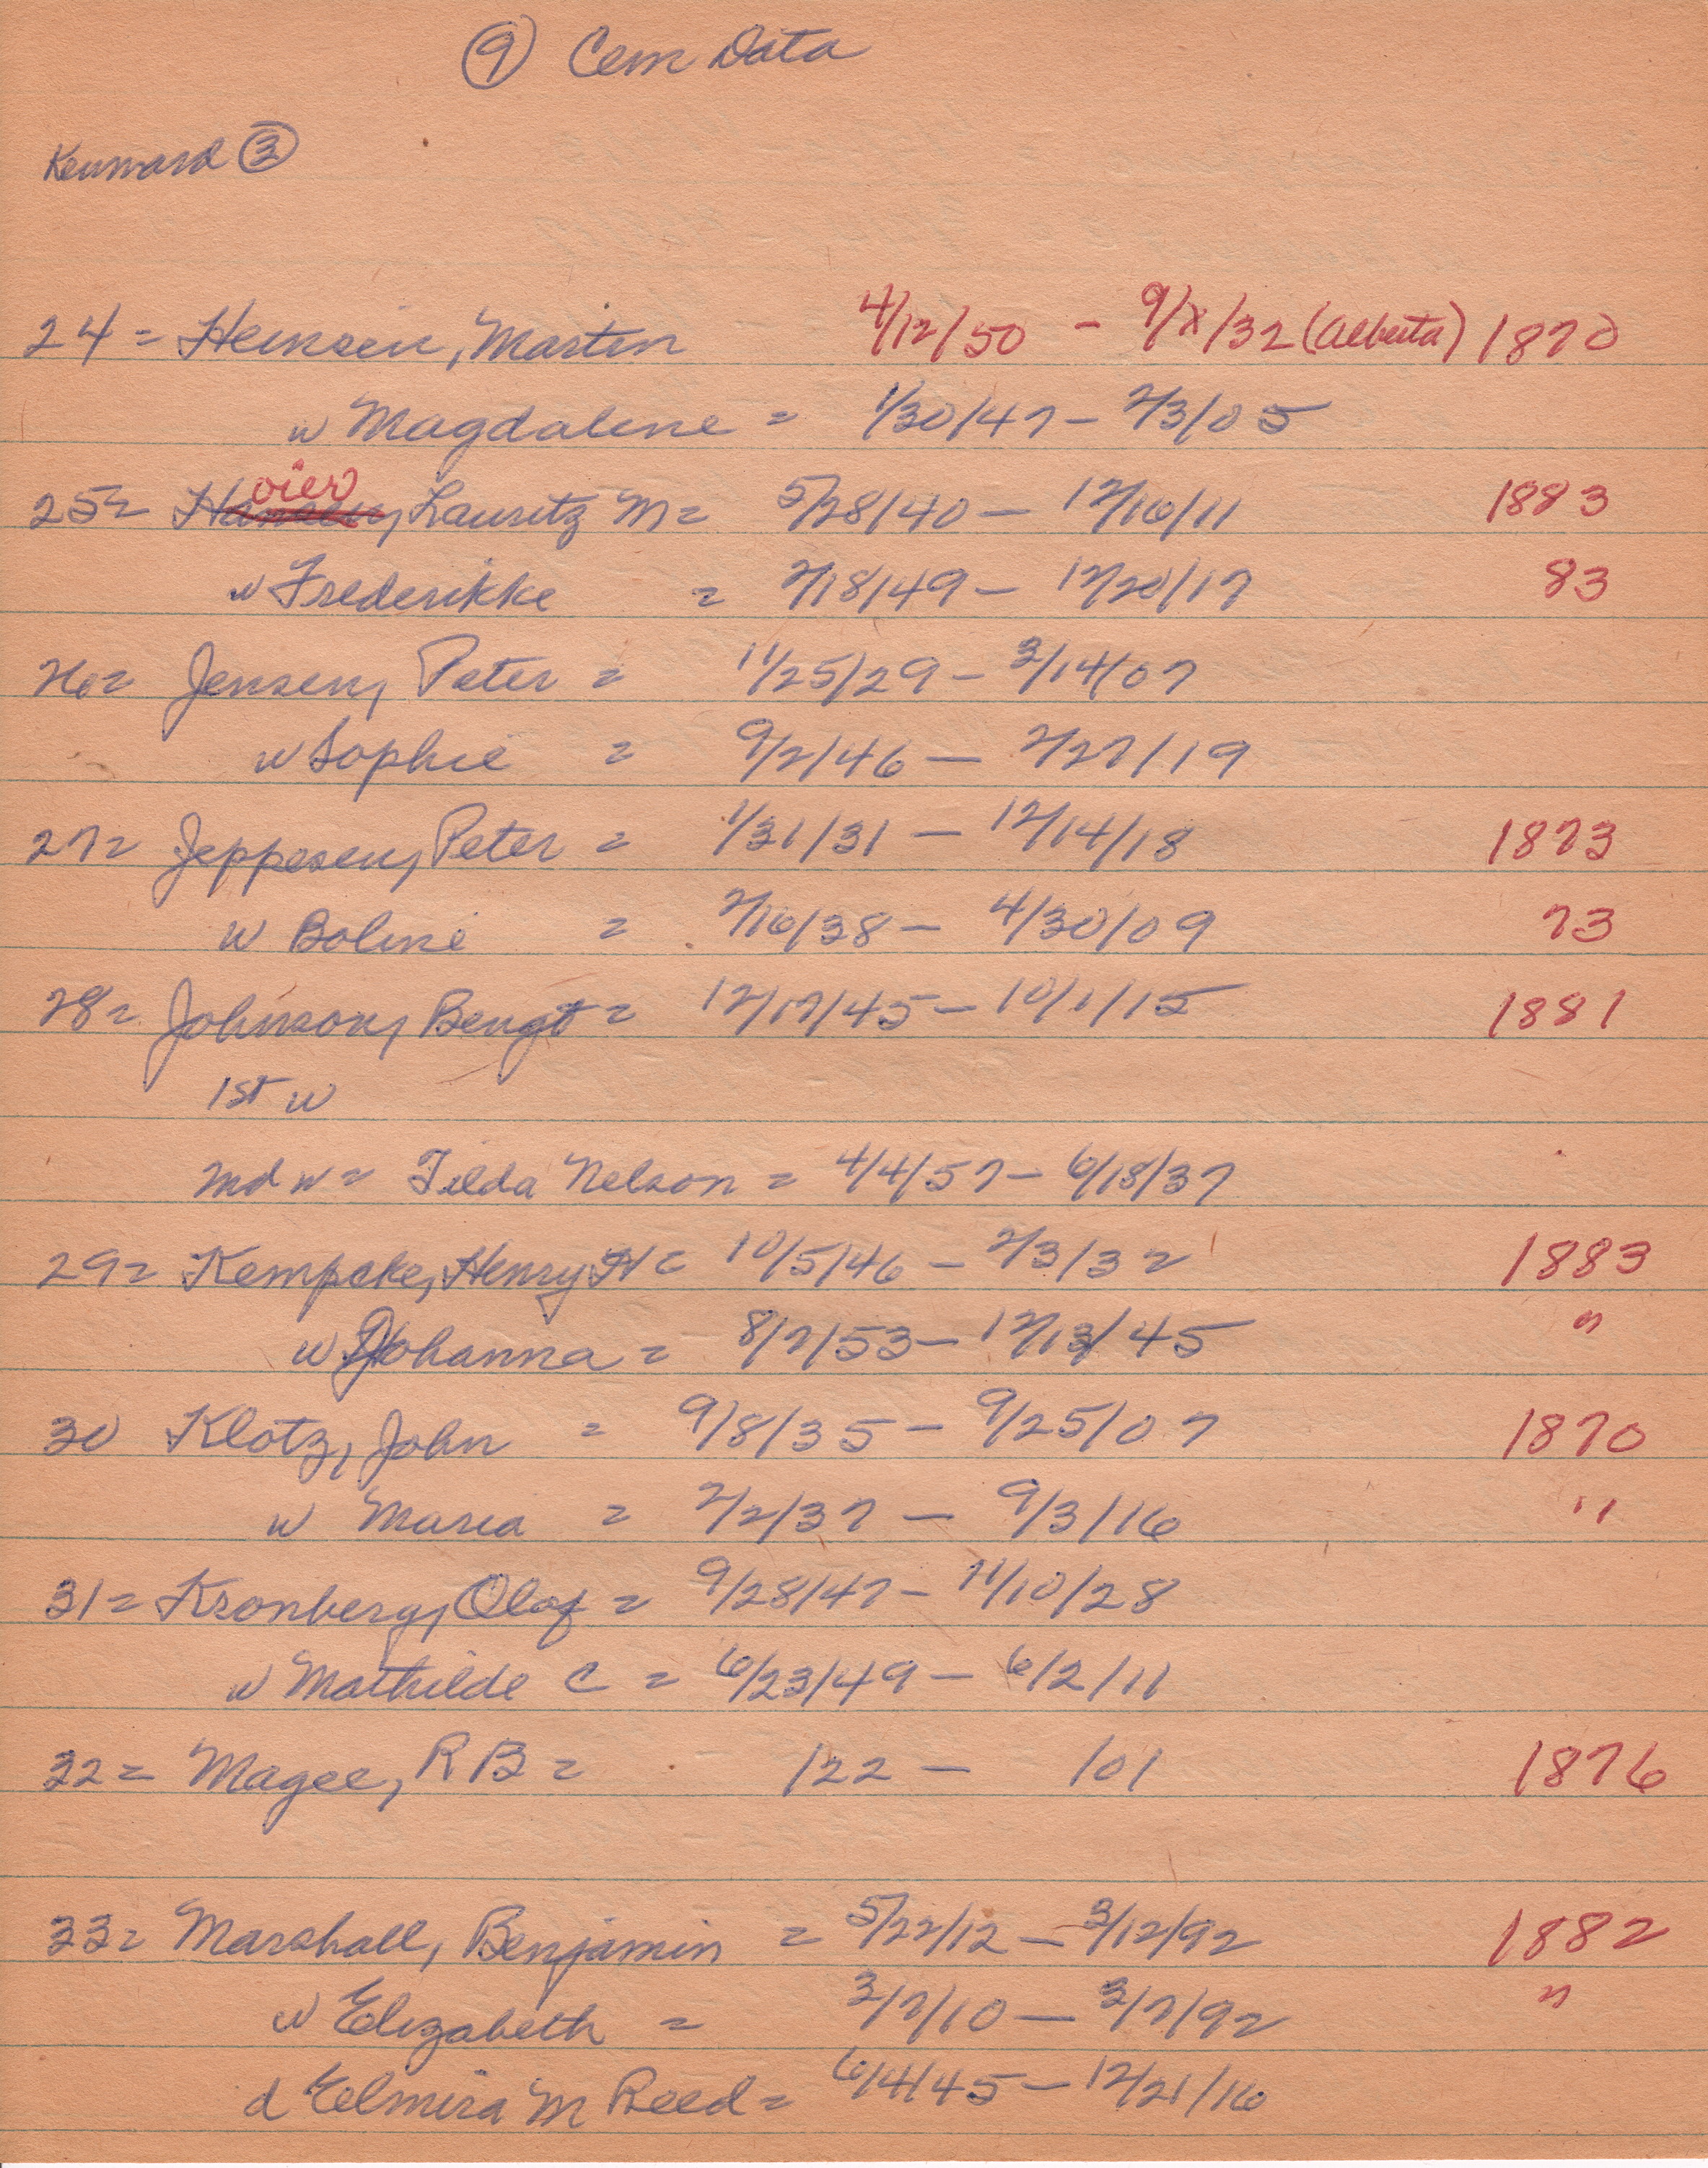 ⑨ Cem Data
Kennard ③
24 = Heinsen, Martin 4/12/50 - 9/X/32 (Alberta) 1870
w Magdalene = 1/30/47 - 2/3/05
oier
25 = Hansen, Lauritz M = 5/28/40 - 12/16/11 1883
w Frederikke = 2/18/49 - 12/20/17 83
26 = Jensen, Peter = 11/25/29 - 3/14/07
w Sophie = 9/2/46 - 2/27/19
27 = Jeppesen, Peter = 1/31/31 - 12/14/18 1873
w Boline = 2/16/38 - 4/30/09 73
28 = Johnson, Bengt = 12/17/45 - 10/1/15 1881
1st w
2nd w = Tilda Nelson = 4/4/57 - 6/18/37
29 = Kempcke, Henry H = 10/5/46 - 2/3/32 1883
w Johanna = 8/7/53 - 12/13/45 "
30 Klotz, John = 9/8/35 - 9/25/07 1870
w Maria = 2/2/37 - 9/3/16 "
31 = Kronberg, Olof = 9/28/47 - 11/10/28
w Mathilde C = 6/23/49 - 6/2/11
32 = Magee, R B = /22 - /01 1876
33 = Marshall, Benjamin = 5/22/12 - 3/12/92 1882
w Elizabeth = 3/7/10 - 3/7/92 "
d Elmira M Reed = 6/4/45 - 12/21/16